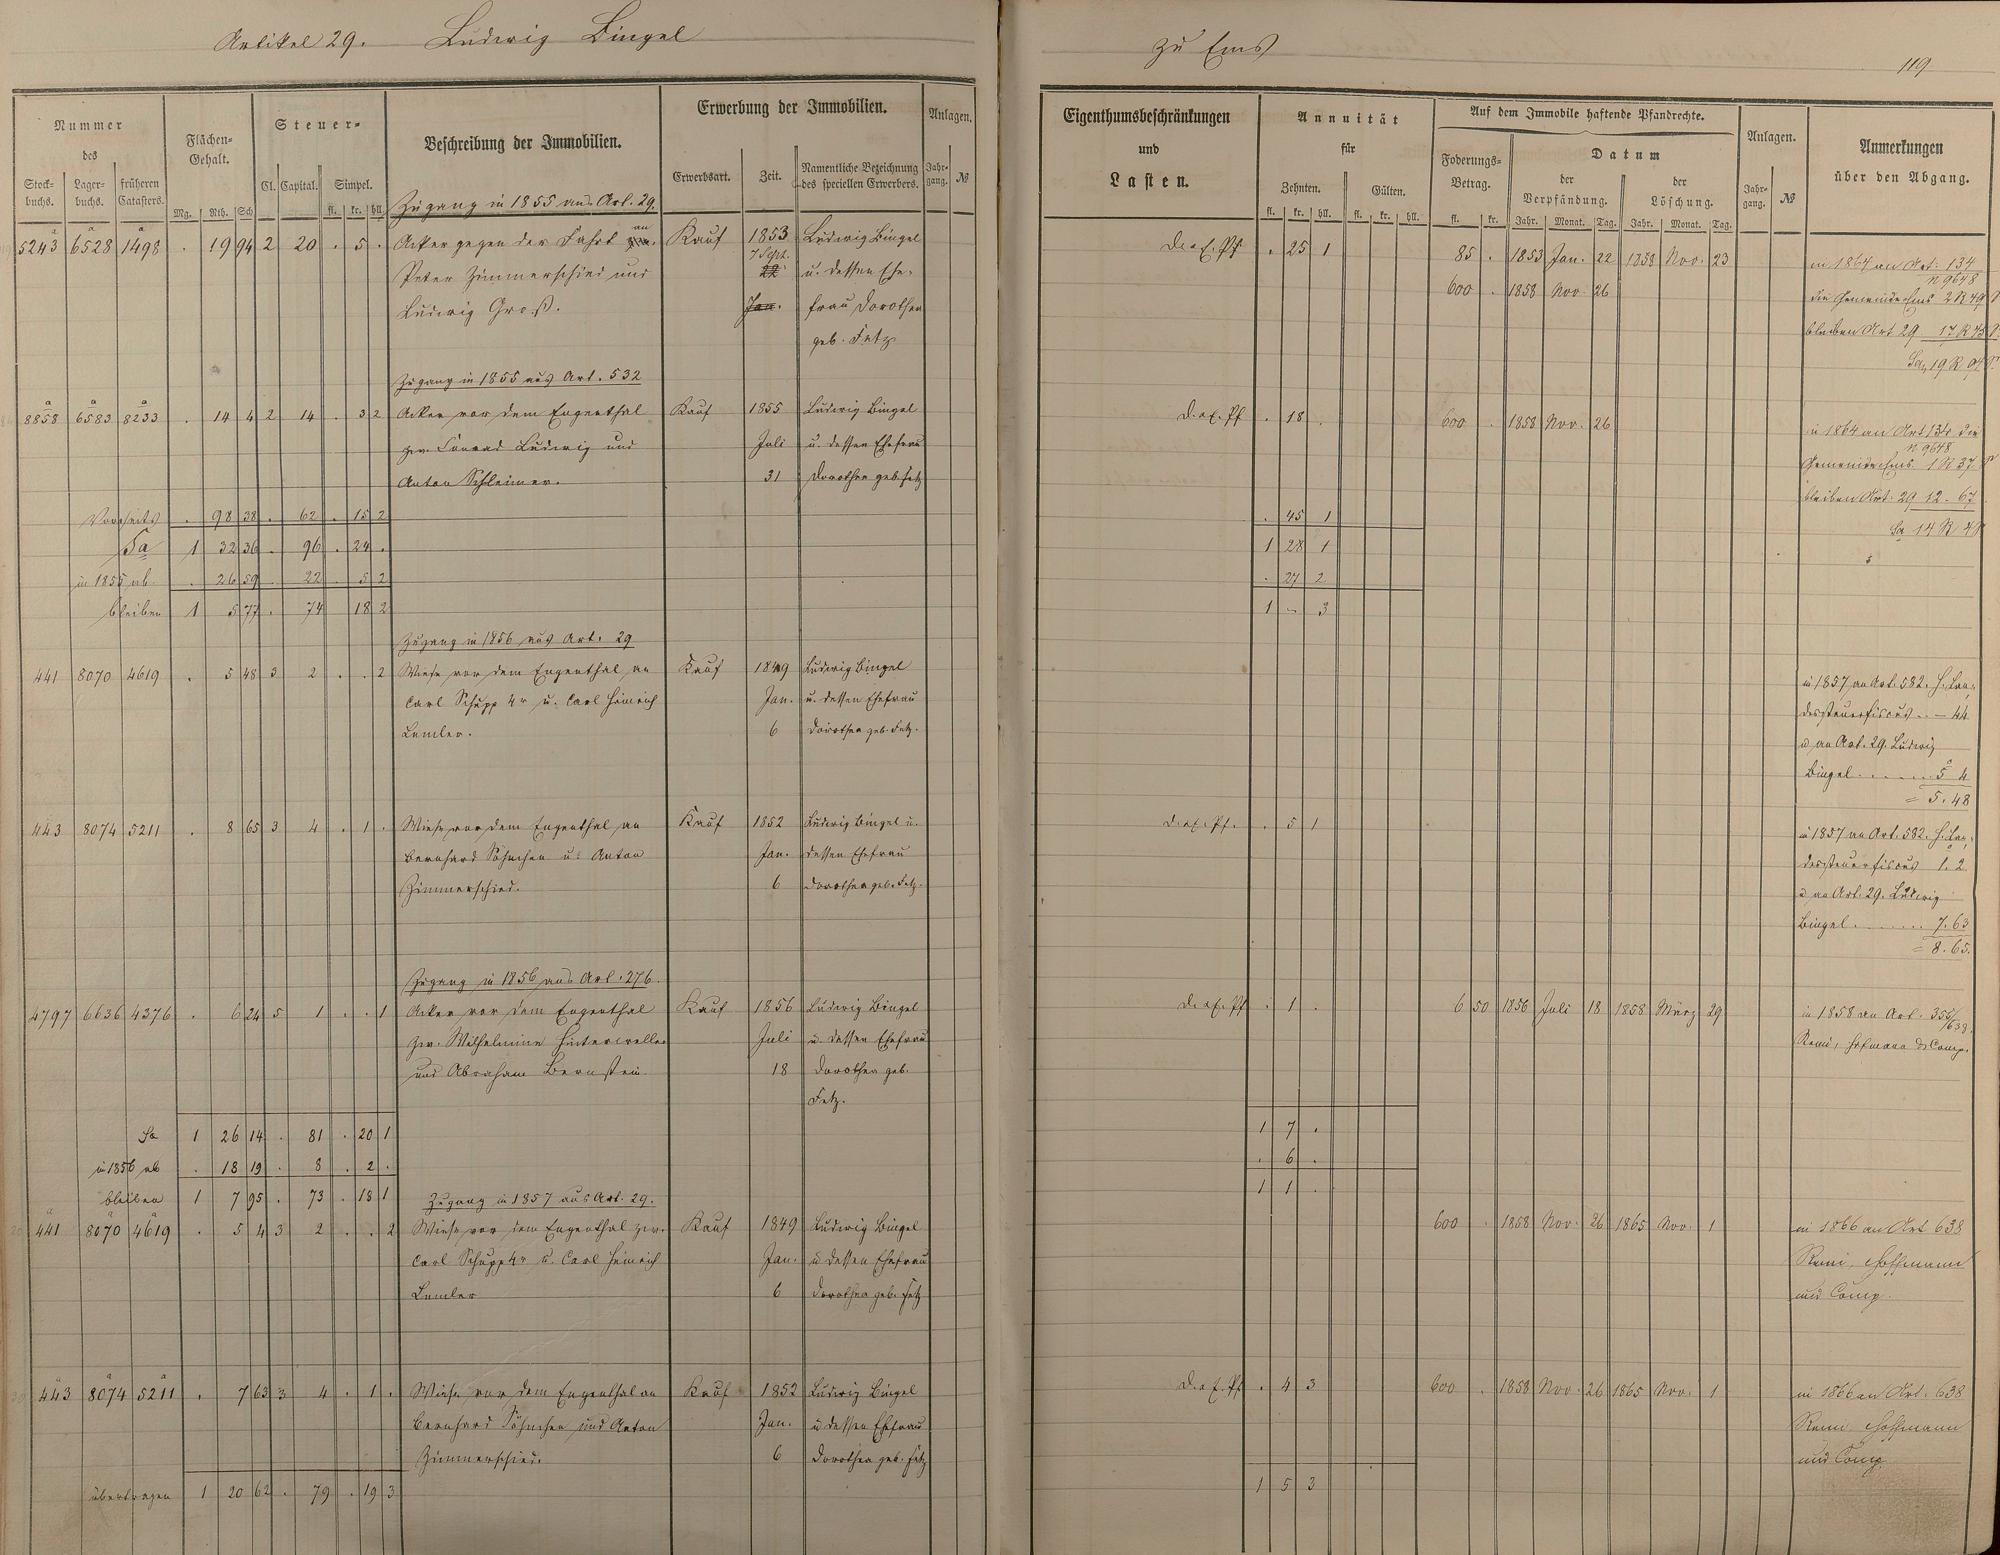 Artikel 29. Ludwig Bingel
Nummer des
Stock-buchs. Lager-buchs. früheren Catasters.
Flächen-Gehalt.
Mg. Rth. Sch
Steuer-
Cl. Capital. Simpel.
fl. kr. hll.
Beschreibung der Immobilien.
Erwerbung der Immobilien.
Erwerbsart. Zeit. Namentliche Bezeichnung des speciellen Erwerbers.
Anlagen.
Jahr-gang. №
Zugang in 1855 aus Art. 29.
5243a 6528a 1498a . 19 94 2 20 . 5 . Acker gegen der Fahrt an Kauf 1853 Ludwig Bingel
Peter Zimmerschied und 7 Sept. 22 u. dessen Ehe-
Ludwig Groß. Jan. frau Dorothea
geb. Fetz
Zugang in 1855 aus Art. 532
8858a 6583a 8233a . 14 4 2 14 . 3 2 Acker vor dem Engenthal Kauf 1855 Ludwig Bingel
zw. Conrad Ludwig und Juli u. dessen Ehefrau
Anton Schleimer. 31 Dorothea geb. Fetz
Vorseits . 98 38 . 62 . 15 2
Sa 1 32 36 . 96 . 24 .
in 1855 ab . 26 59 . 22 . 5 2
bleiben 1 5 77 . 74 . 18 2
Zugang in 1856 aus Art. 29
441 8070 4619 . 5 48 3 2 . . 2 Wiese vor dem Engenthal an Kauf 1849 Ludwig Bingel
Carl Schupp 4r u. Carl Heinrich Jan. u. dessen Ehefrau
Lemler. 6 Dorothea geb. Fetz.
443 8074 5211 . 8 65 3 4 . 1 . Wiese vor dem Engenthal an Kauf 1852 Ludwig Bingel u.
Bernhard Söhnchen u. Anton Jan. dessen Ehefrau
Zimmerschied. 6 Dorothea geb. Fetz.
Zugang in 1856 aus Art. 276.
4797 6636 4376 . 6 24 5 1 . . 1 Acker vor dem Engenthal Kauf 1856 Ludwig Bingel
zw. Wilhelmine Hinterweller Juli u. dessen Ehefrau
und Abraham Bernstein 18 Dorothea geb.
Fetz.
Sa 1 26 14 . 81 . 20 1
in 1856 ab . 18 19 . 8 . 2 .
bleiben 1 7 95 . 73 . 18 1
Zugang in 1857 aus Art. 29.
441a 8070a 4619a . 5 4 3 2 . . 2 Wiese vor dem Engenthal zw. Kauf 1849 Ludwig Bingel
Carl Schupp 4r u. Carl Heinrich Jan. u dessen Ehefrau
Lemler 6 Dorothea geb. Fetz
443a 8074a 5211a . 7 63 3 4 . 1 . Wiese vor dem Engenthal an Kauf 1852 Ludwig Bingel
Bernhard Söhnchen und Anton Jan. u dessen Ehefrau
Zimmerschied. 6 Dorothea geb. Fetz
übertragen 1 20 62 . 79 . 19 3
zu Ems
119
Eigenthumsbeschränkungen und Lasten.
Annuität für
Zehnten. Gülten.
fl. kr. hll. fl. kr. hll.
Auf dem Immobile haftende Pfandrechte.
Foderungs-Betrag. Datum
der Verpfändung. der Löschung.
fl. kr. Jahr. Monat. Tag. Jahr. Monat. Tag.
Anlagen.
Jahr-gang. №
Anmerkungen über den Abgang.
D. a E. Pf . 25 1 85 . 1853 Jan. 22 1858 Nov. 23 in 1864 an Art: 134
n 9648
600 . 1858 Nov 26 die Gemeinde Ems 2 R 49 S
bleiben Art 29 17 R 45 S
Sa, 19 R 94 S
D. a E. Pf . 18 . 600 . 1858 Nov. 26 in 1864 an Art 134 die
n 9648
Gemeinde Ems 1 R 37 S
bleiben Art. 29 12 - 67
Sa 14 R 4 S
. 45 1
1 28 1
. 27 2
1 - 3
in 1857 an Art. 582. H. Lan-
dessteuerfiscus . . — 44
u an Art. 29. Ludwig
Bingel . . . . . . 5 4
= 5. 48
D. a E. Pf. . 5 1 in 1857 an Art. 582. H. Lan-
dessteuerfiscus 1. 2
u an Art. 29. Ludwig
Bingel . . . . . . 7. 63
= 8. 65.
D. a E. Pf . 1 . 6 50 1856 Juli 18 1858 März 29 in 1858 an Art. 355/638.
Remi, Hofmann & Comp.
1 7 .
. 6 .
1 1 .
600 . 1858 Nov. 26 1865 Nov. 1 in 1866 an Art 638
Remi, Hoffmann
und Comp.
D. a E. Pf . 4 3 600 . 1858 Nov. 26 1865 Nov. 1 in 1866 an Art. 638
Remi, Hoffmann
und Comp
1 5 3